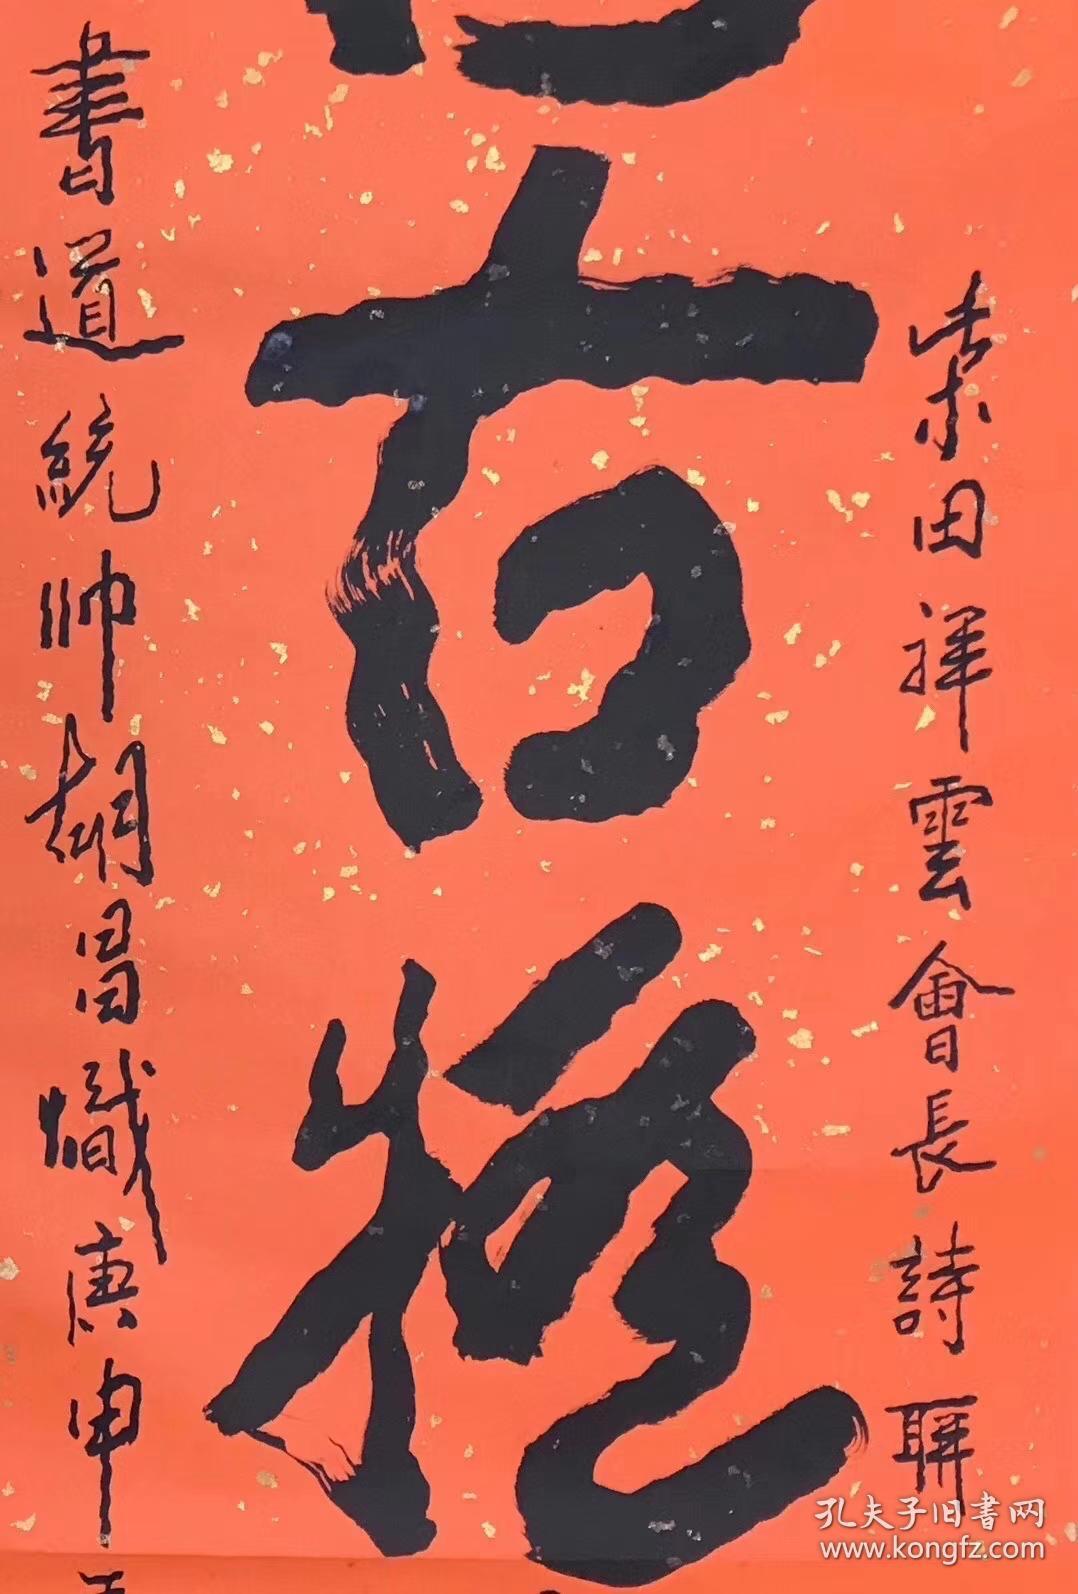 柴田祥雲會長詩聯
書道統帥胡昌熾庚申
孔夫子旧书网
www.kongfz.com